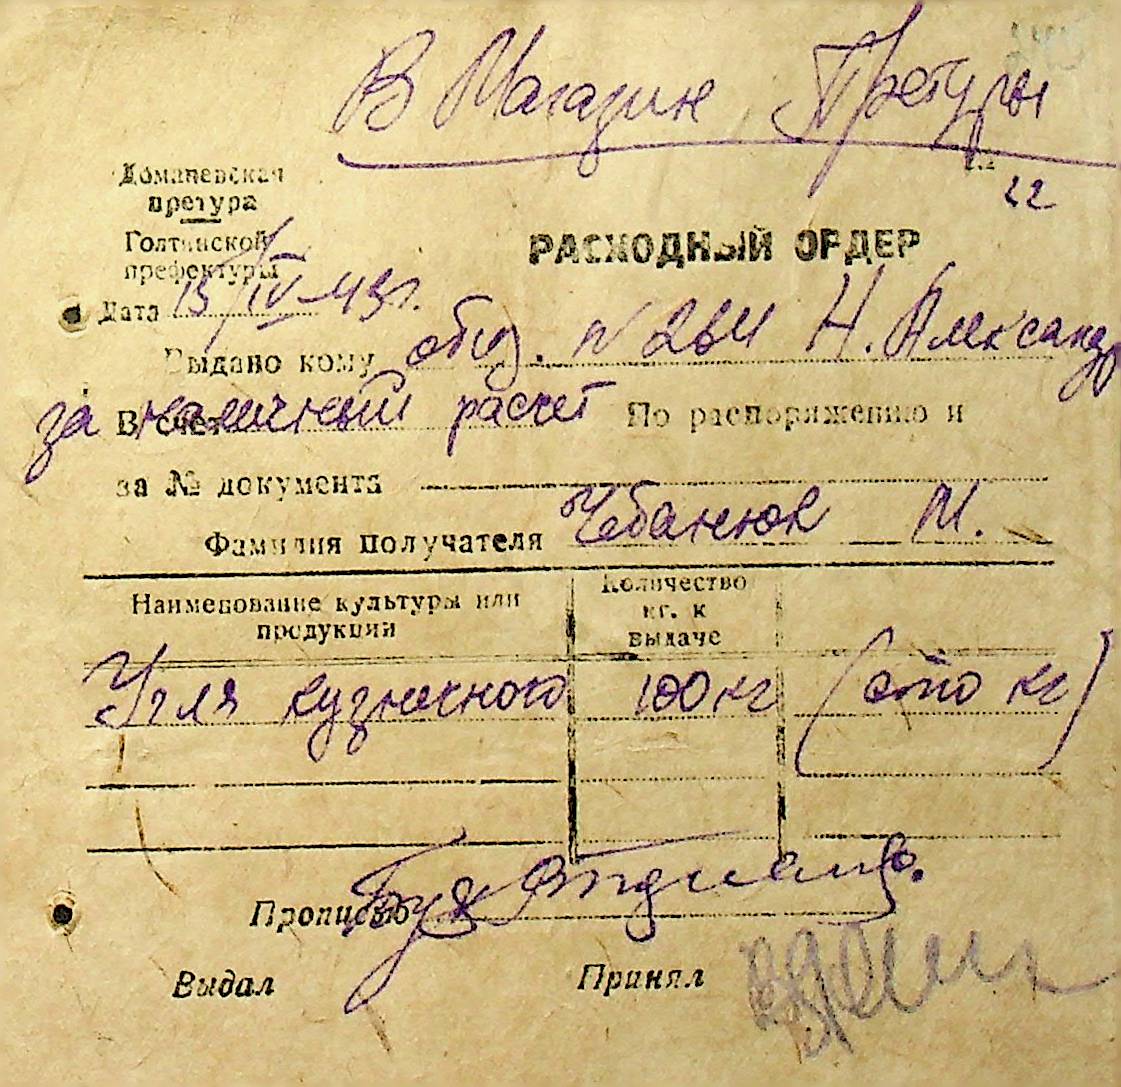 В Магазин Претуры
Доманевская
претура
Голтянской
префектуры
22
РАСХОДНЫЙ ОРДЕР
Дата 13/IV-43г.
Выдано кому общ. № 264 Н. Александр
В счет за наличный расчет По распоряжению и
за № документа
Фамилия получателя Чебанюк М.
Наименование культуры или
продукции
Количество
кг. к
выдаче
Угля кузнечного 100 кг (сто кг)
Прописью
Выдал Принял